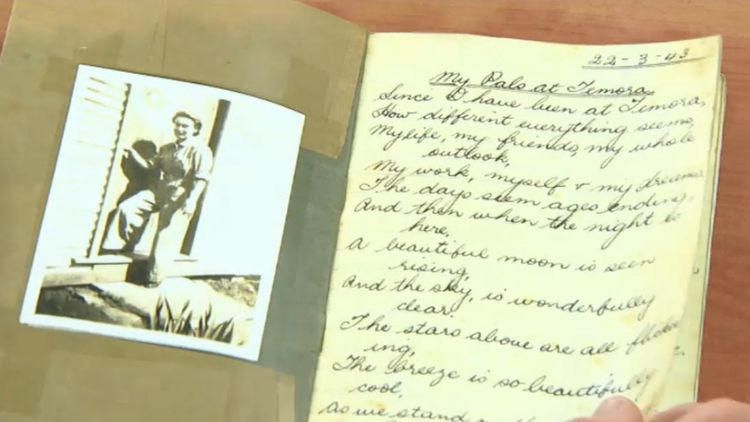 22-3-43
My Pals at Temora.
Since I have been at Temora,
How different everything seems,
My life, my friends, my whole
outlook,
My work, myself & my dreams
The days seem ages ending,
And then when the night is
here,
A beautiful moon is seen
rising,
And the sky, is wonderfully
clear,
The stars above are all
ing,
The breeze is so beautifully
cool,
as we stand